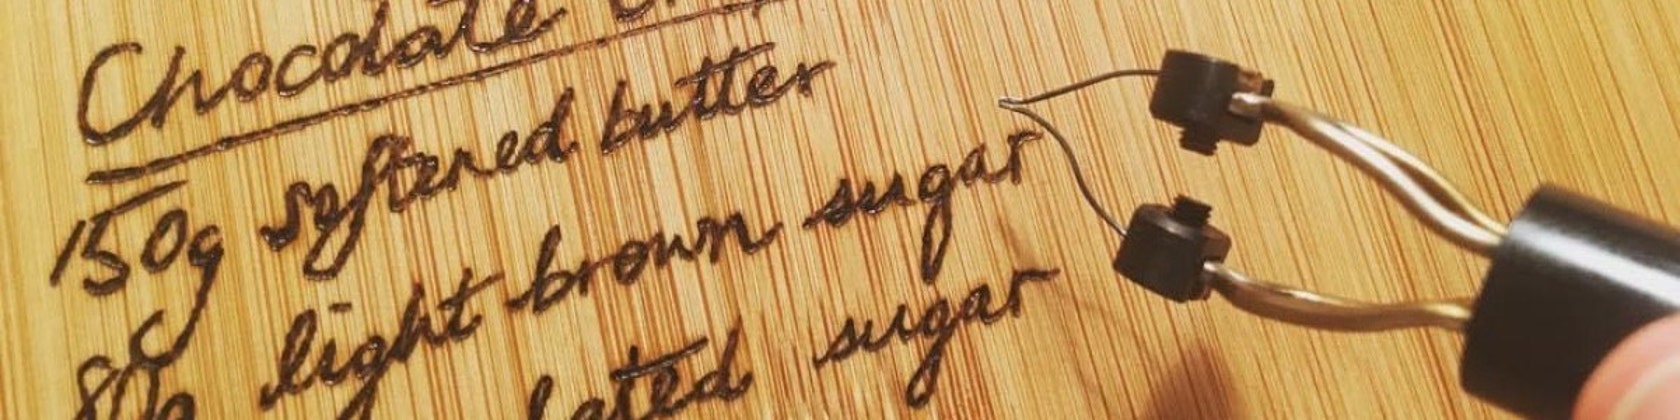 Chocolate
150g softened butter
80g light brown sugar
lated sugar